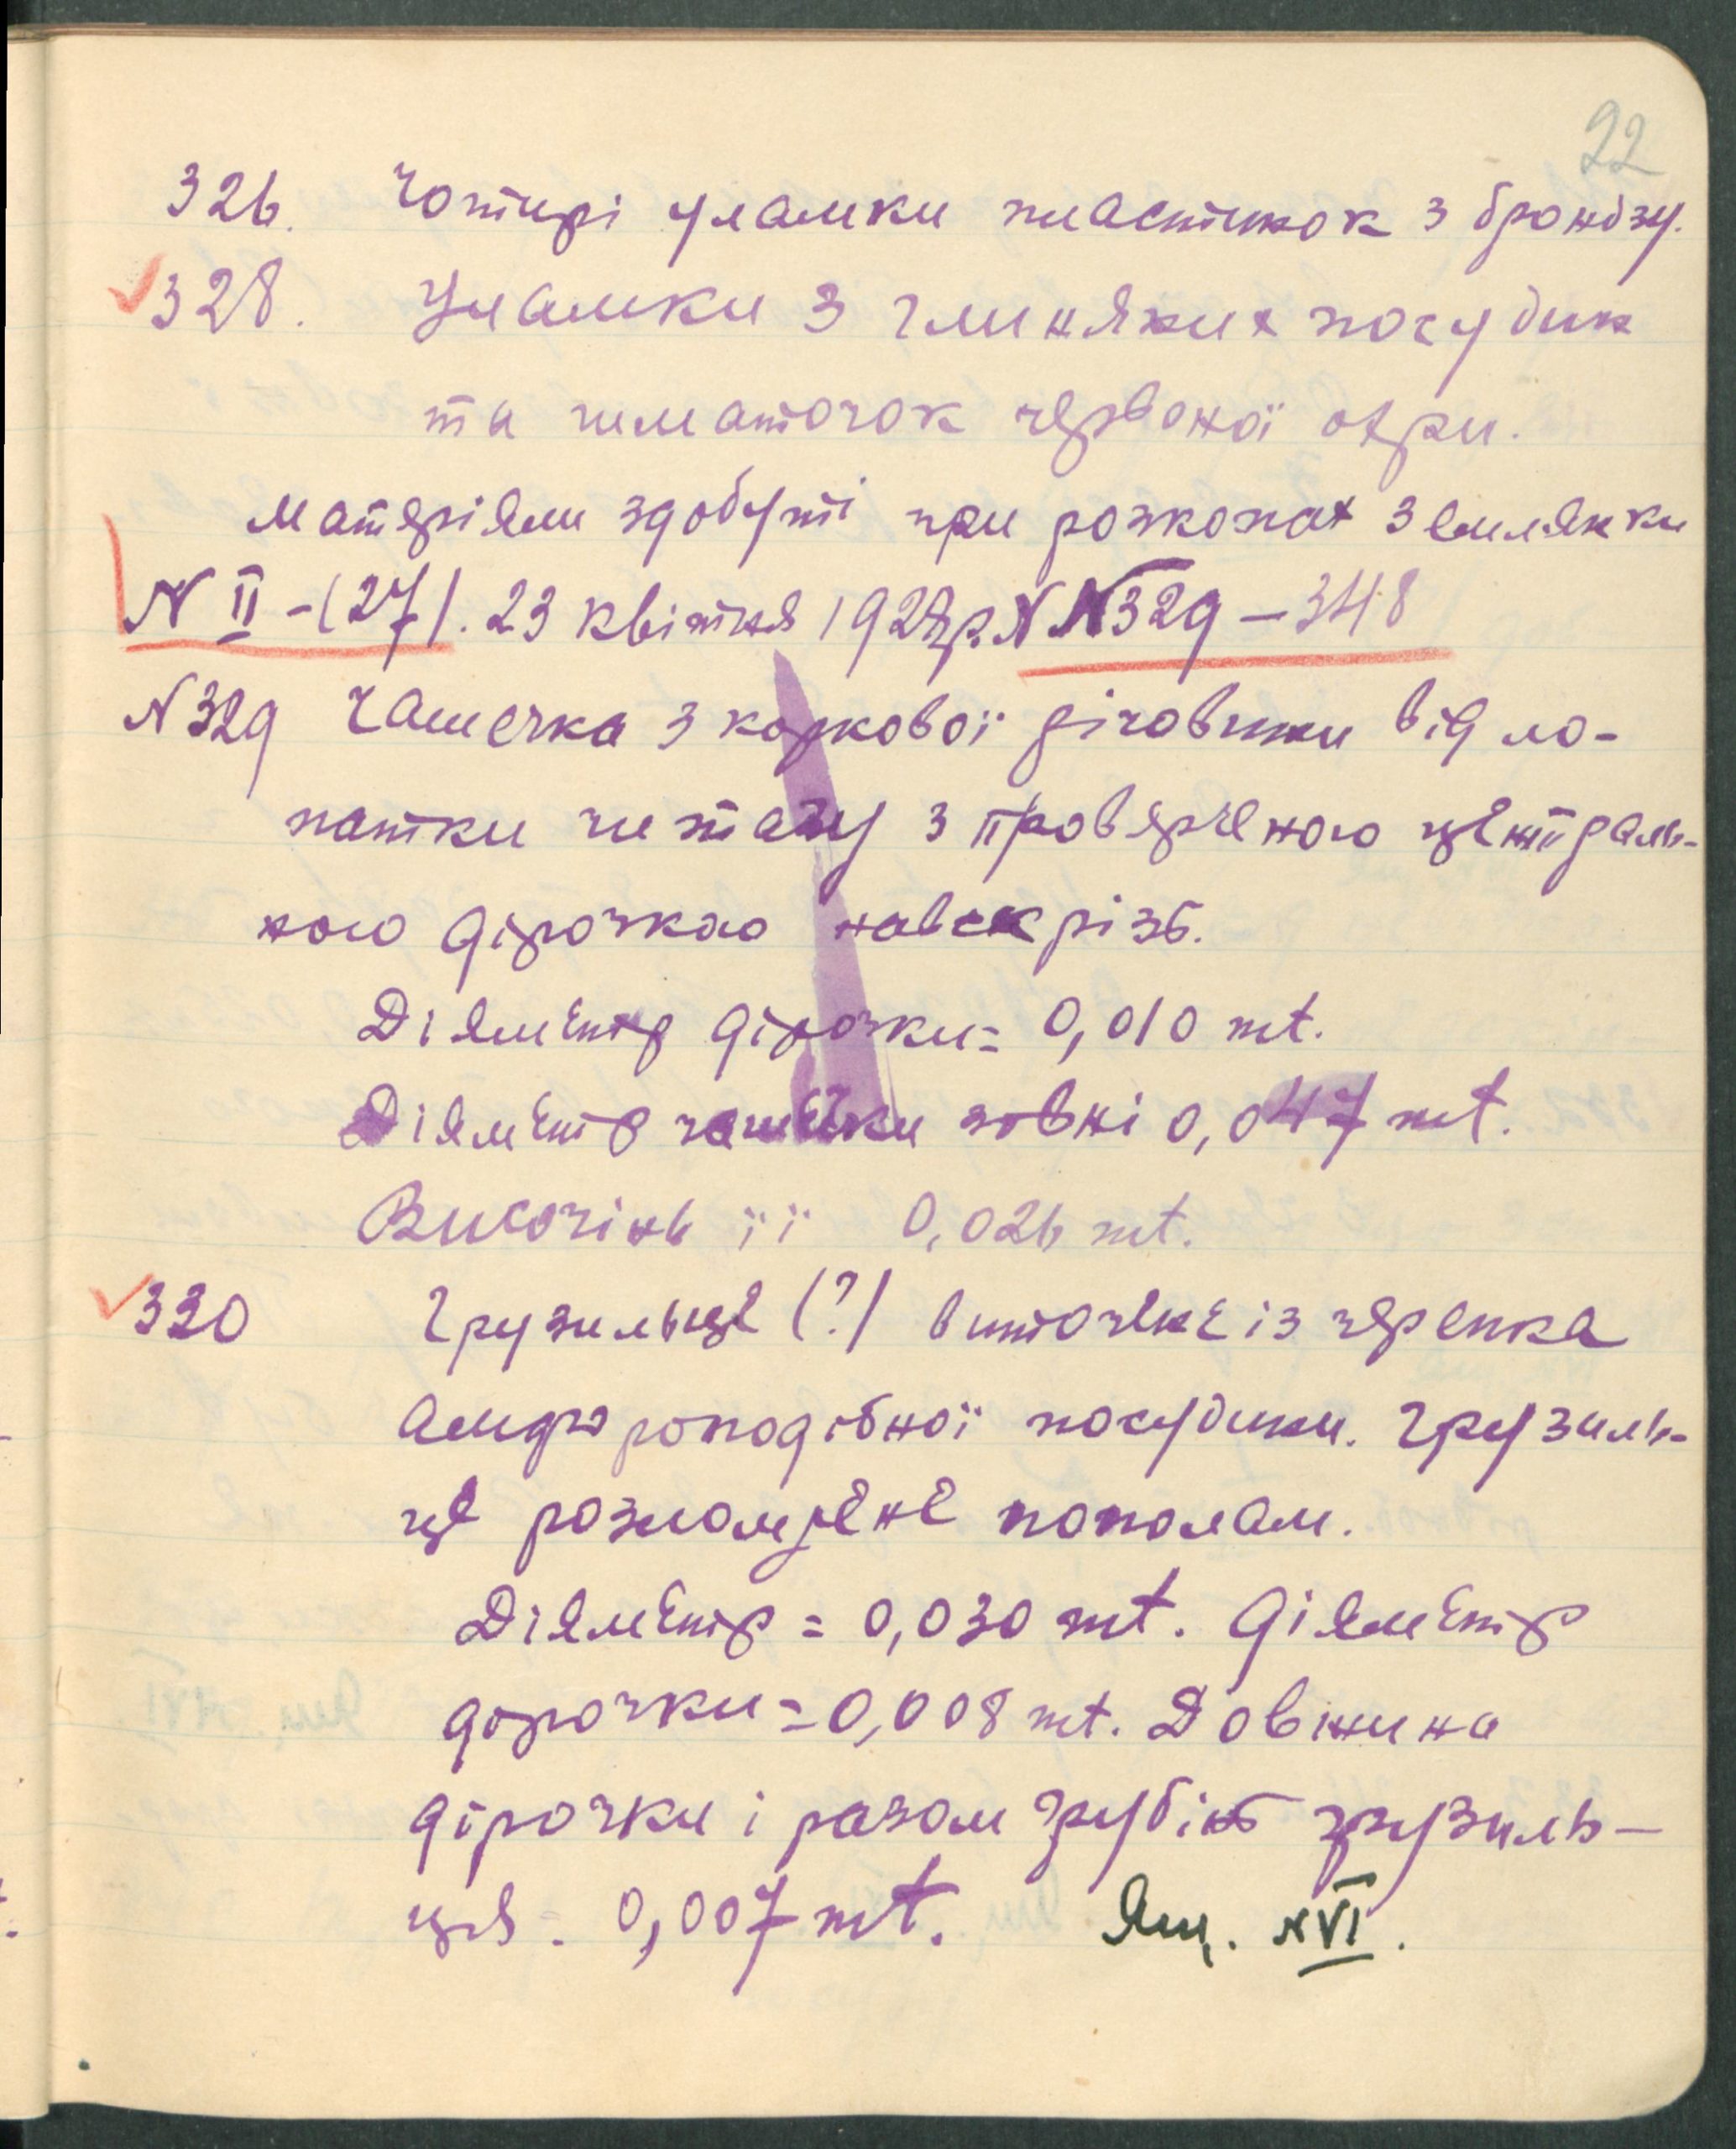 22
326. Чотирі уламки пластинок з бронзу.
328. Уламки з глиняних посудин
та шматочок червоної охри.
Матеріяли здобуті при розкопах землянки
N II – (27). 23 квітня 1928 р. N N 329 – 348
N 329 Чашечка з коркової річовини від ло-
патки чи тазу з проверченою централь-
ною дірочкою навскрізь.
Діяметр дірочки = 0,010 mt.
Діяметр чашечки зовні 0,047 mt.
Височінь її 0,026 mt.
330 Грузильце (?) виточене із черепка
амфороподібної посудини. Грузиль-
це розломлене пополам.
Діяметр = 0,030 mt. Діяметр
дірочки = 0,008 mt. Довжина
дірочки і разом грубінь грузиль-
ця = 0,007 mt. Ящ. XVI.